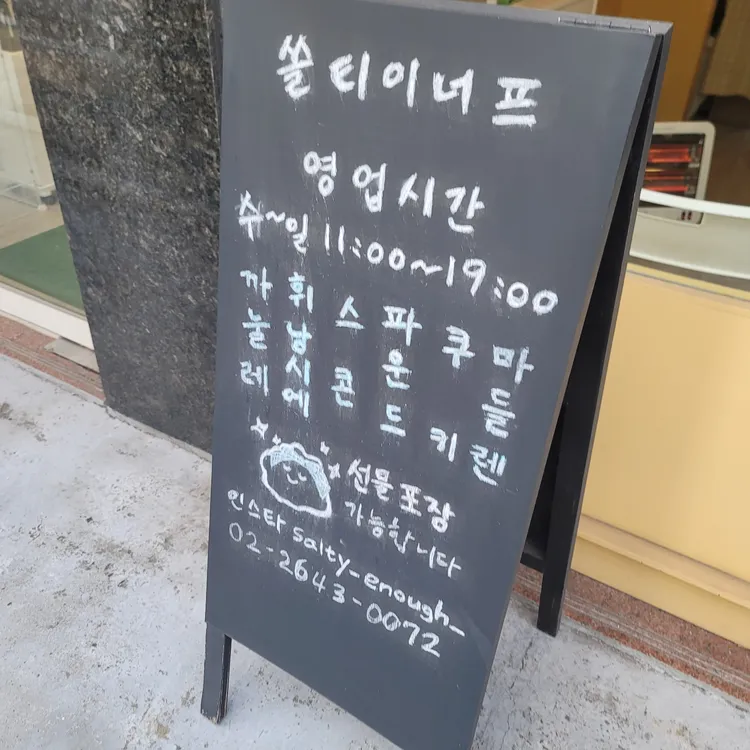 쏠티이너프
영업시간
수~일 11:00~19:00
까눌레
휘낭시에
스콘
파운드
쿠키
마들렌
선물포장
가능합니다
인스타 salty_enough_
02-2643-0072